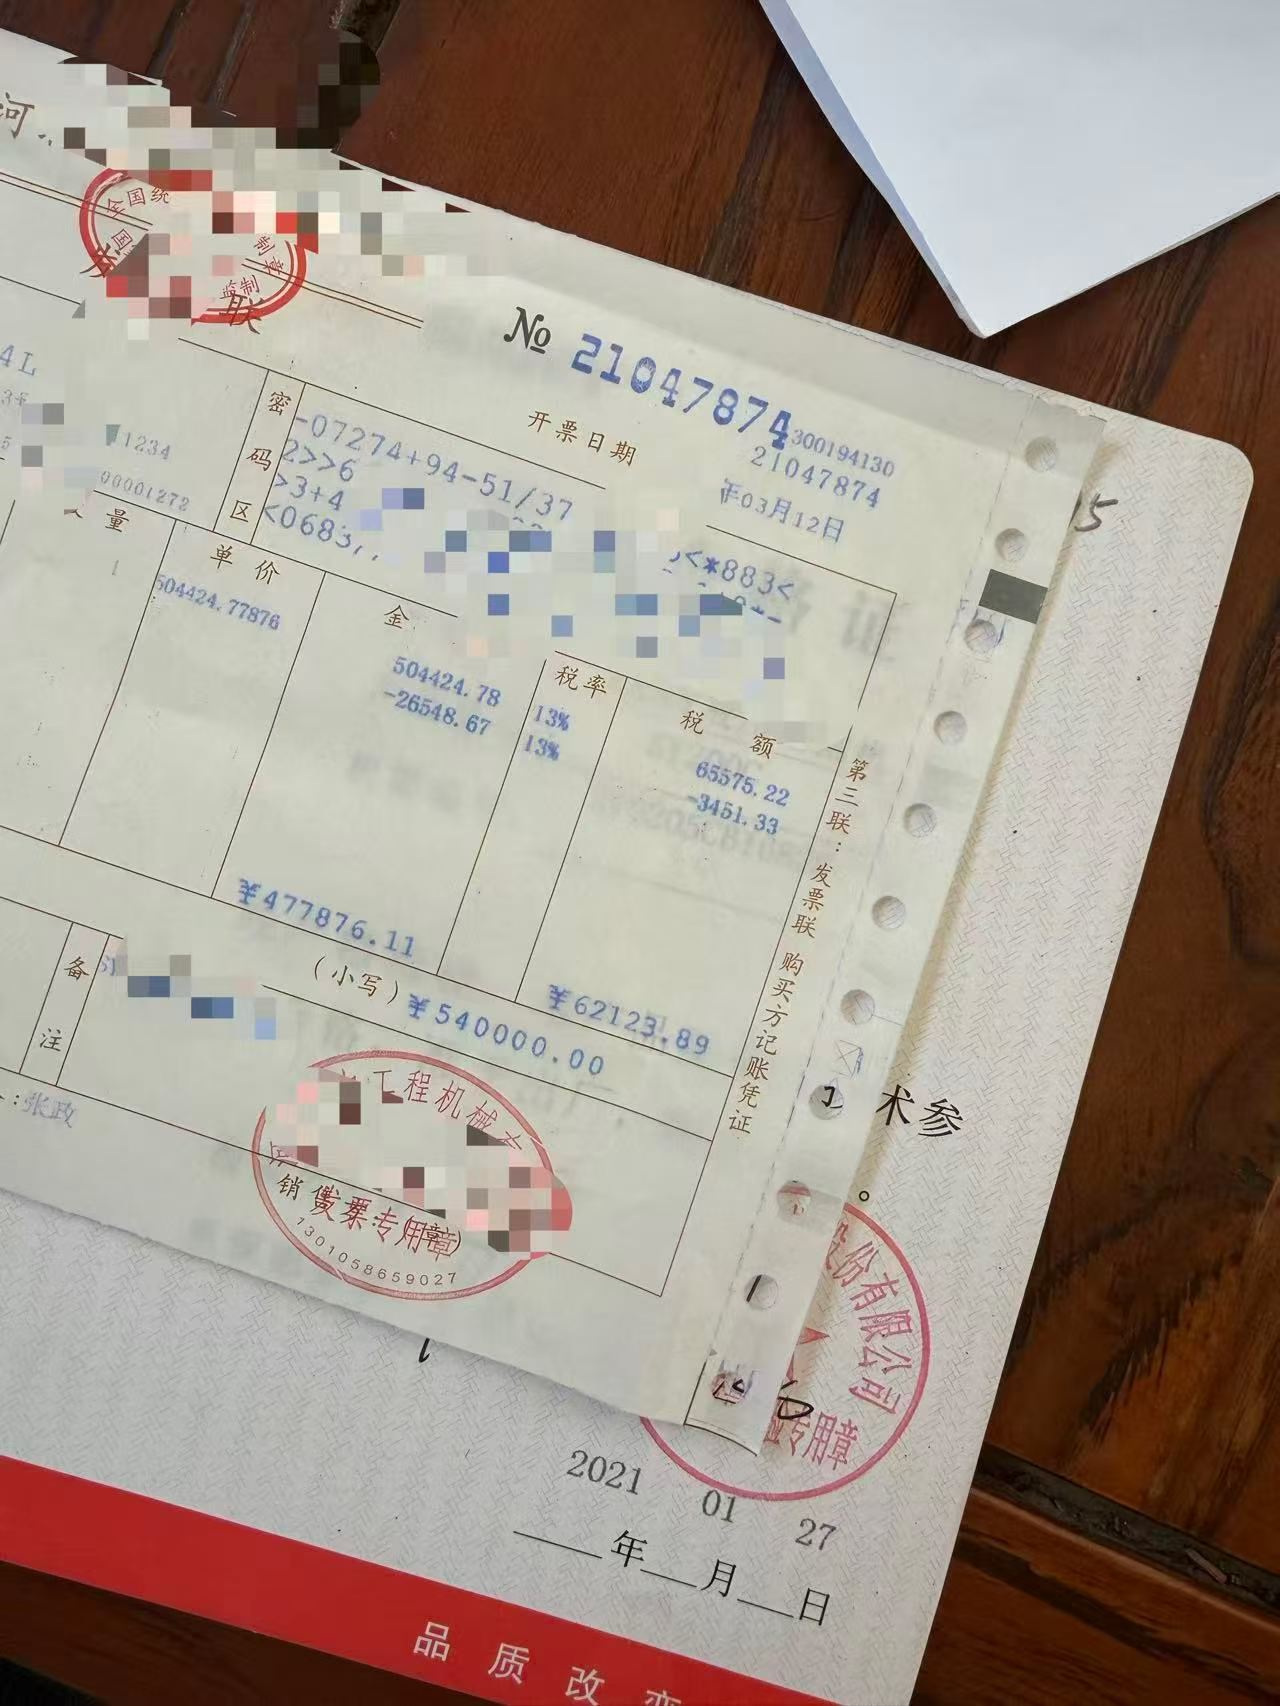 河
全国统
制章
国
监制
联
№ 21047874
300194130
21047874
开票日期
年03月12日
4L
1234
00001272
密码区
-07274+94-51/37
2>>6
>3+4
<*883<
<0683
量
单价
金
税率
税额
1
504424.77876
504424.78
13%
65575.22
-26548.67
13%
-3451.33
¥477876.11
¥62123.89
(小写)¥540000.00
备注
第三联:发票联 购买方记账凭证
:张政
工程机械
销
发票专用章
(章)
1301058659027
5
术参
。
股份有限公司
专用章
2021 01 27
年 月 日
品质改变